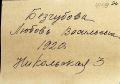 Безгубова
Любовь Васильевна
1920.
Никольская 3